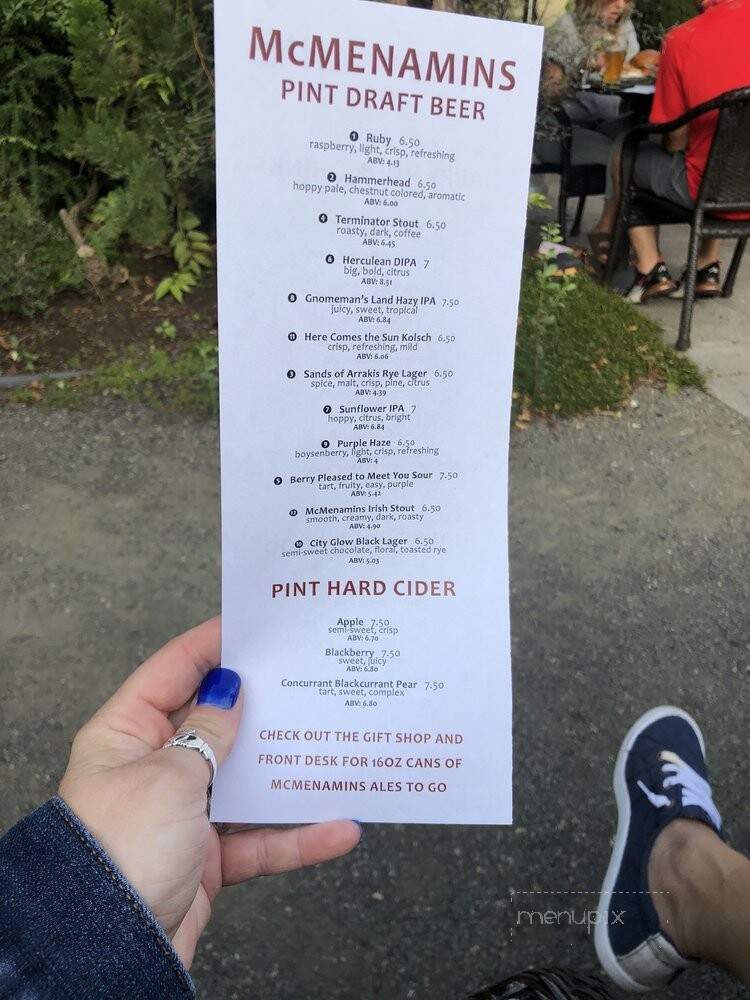 McMENAMINS
PINT DRAFT BEER
1 Ruby 6.50
raspberry, light, crisp, refreshing
ABV: 4.13
2 Hammerhead 6.50
hoppy pale, chestnut colored, aromatic
ABV: 6.00
4 Terminator Stout 6.50
roasty, dark, coffee
ABV: 6.45
6 Herculean DIPA 7
big, bold, citrus
ABV: 8.51
8 Gnomeman's Land Hazy IPA 7.50
juicy, sweet, tropical
ABV: 6.84
11 Here Comes the Sun Kolsch 6.50
crisp, refreshing, mild
ABV: 6.06
3 Sands of Arrakis Rye Lager 6.50
spice, malt, crisp, pine, citrus
ABV: 4.39
7 Sunflower IPA 7
hoppy, citrus, bright
ABV: 6.84
9 Purple Haze 6.50
boysenberry, light, crisp, refreshing
ABV: 4
5 Berry Pleased to Meet You Sour 7.50
tart, fruity, easy, purple
ABV: 5.42
12 McMenamins Irish Stout 6.50
smooth, creamy, dark, roasty
ABV: 4.90
10 City Glow Black Lager 6.50
semi-sweet chocolate, floral, toasted rye
ABV: 5.03
PINT HARD CIDER
Apple 7.50
semi-sweet, crisp
ABV: 6.70
Blackberry 7.50
sweet, juicy
ABV: 6.80
Concurrant Blackcurrant Pear 7.50
tart, sweet, complex
ABV: 6.80
CHECK OUT THE GIFT SHOP AND
FRONT DESK FOR 16OZ CANS OF
MCMENAMINS ALES TO GO
menupix